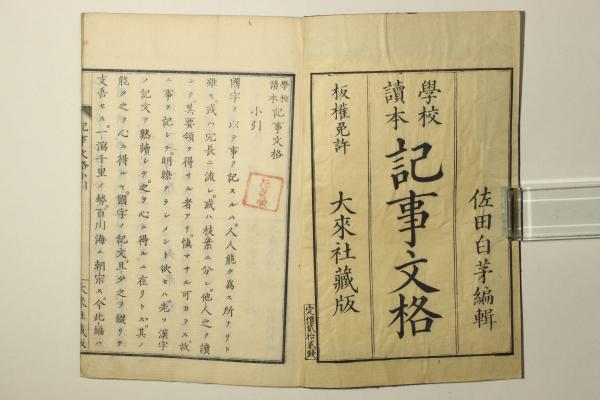 佐田白茅編輯
學校
讀本
記事文格
板權免許
大來社藏版
定價貳拾貳錢
學校
讀本
記事文格
小引
國字ヲ以テ事ヲ記スルハ人人能ク爲ス所ナリト
雖モ或ハ冗長ニ流レ或ハ枝葉ニ分レ他人之ヲ讀
テ其要領ヲ得サル者アリ愼マサル可カラス故
ニ事ヲ記シテ明瞭ナラシメント欲セハ先ツ漢字
ノ記文ヲ熟讀シテ之ヲ心ニ得ルニ在リトス其ノ
能ク之ヲ心ニ得ルヤ國字ノ記文旦夕之ヲ綴リテ
支吾セス一瀉千里ノ勢百川海ニ朝宗ス今此編ハ
記事文格小引
大來社藏版